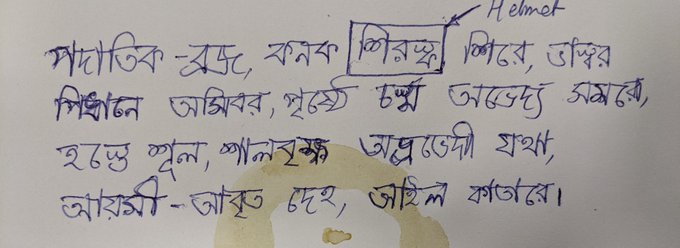 Helmet
পদাতিক-ব্রজ, কনক শিরস্ক শিরে, ভাস্বর
পিধানে অসিবর, পৃষ্ঠে চর্ম্ম অভেদ্য সমরে,
হস্তে শূল, শালবৃক্ষ অভ্রভেদী যথা,
আয়সী-আবৃত দেহ, আইল কাতারে।